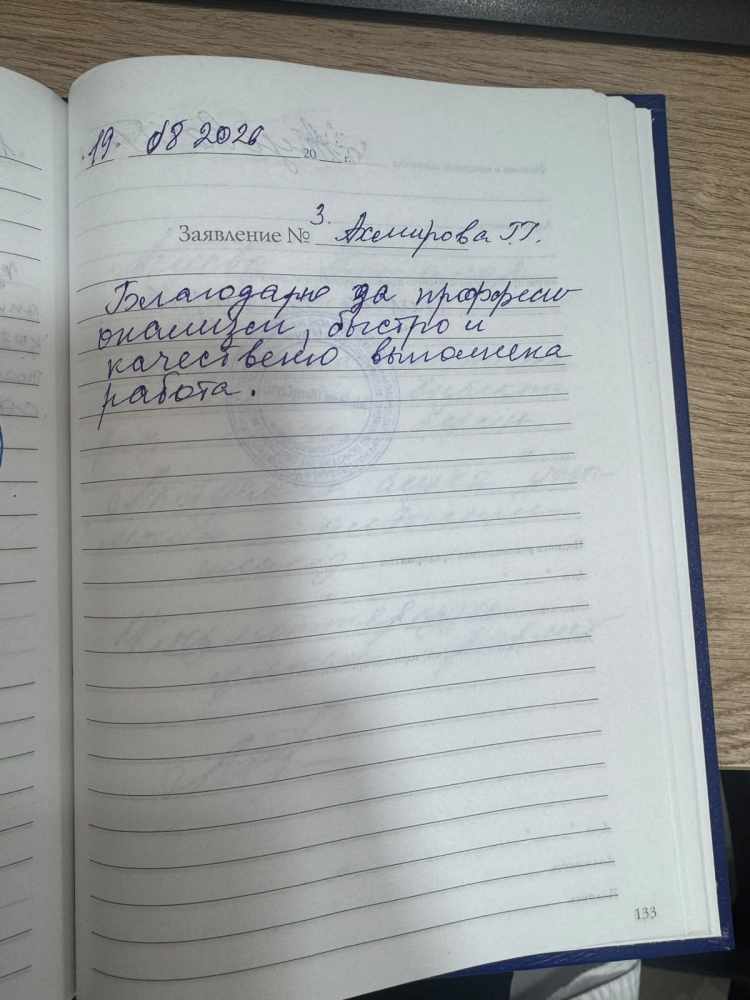 19. 08 2026 20 г.
Заявление № 3. Ахмирова Г.Г.
Благодарю за професси
онализм, быстро и
качествено выполнена
работа.
133